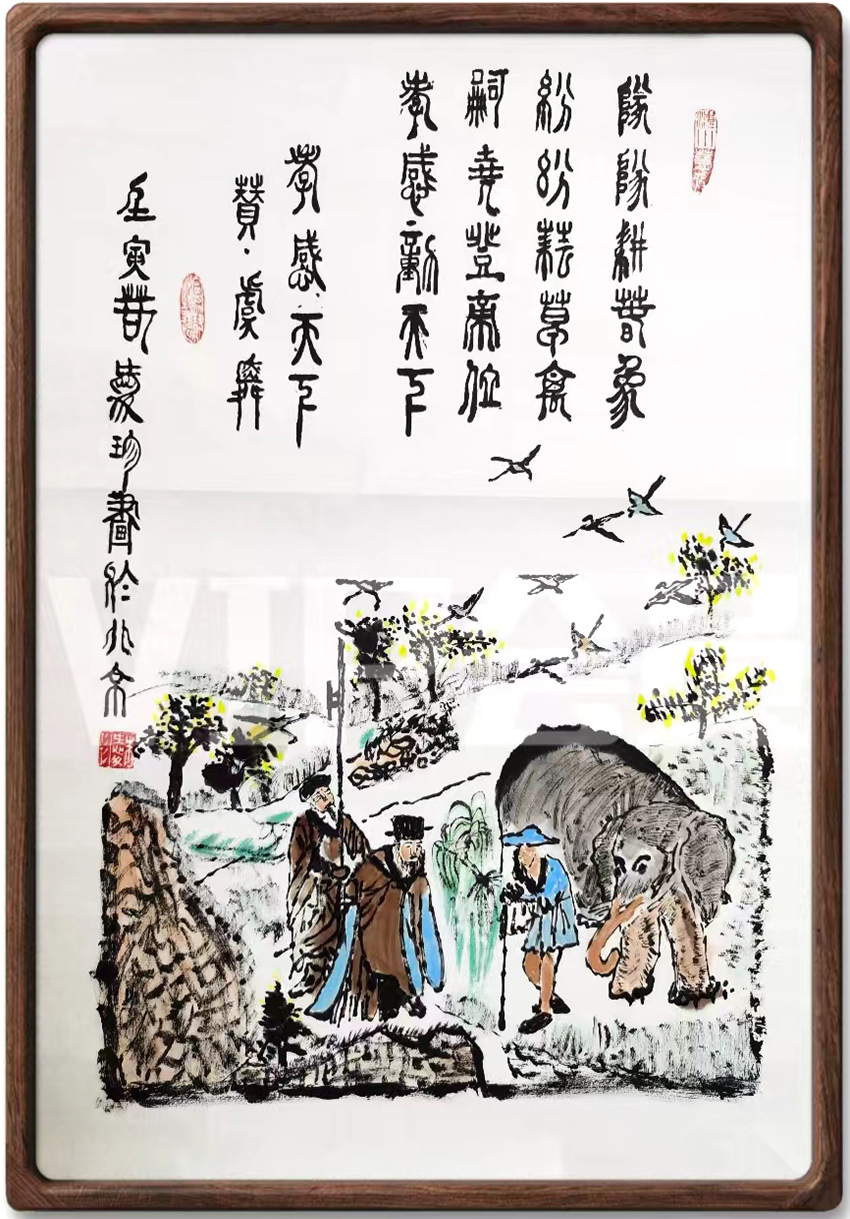 隊隊耕春象
紛紛耘草禽
嗣堯登帝位
孝感動天下
孝感天下
贊·虞舜
壬寅春愛珍畫於北京